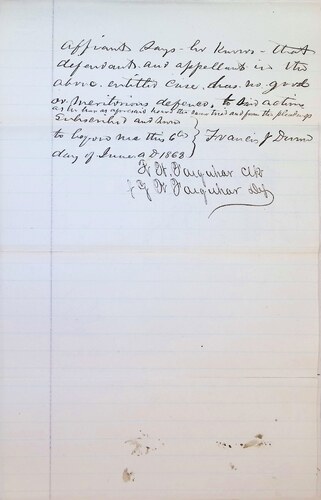 affiants says he knows that
defendant and appellant in the
above entitled case has no good
or meritorious defence, to said action
as he has as aforesaid heard the same tried and from the pleadings
Subscribed and sworn
to before me this 6th } Francis J
day of June AD 1868
F. W. Farquhar Clk
F. W. Farquhar Dy